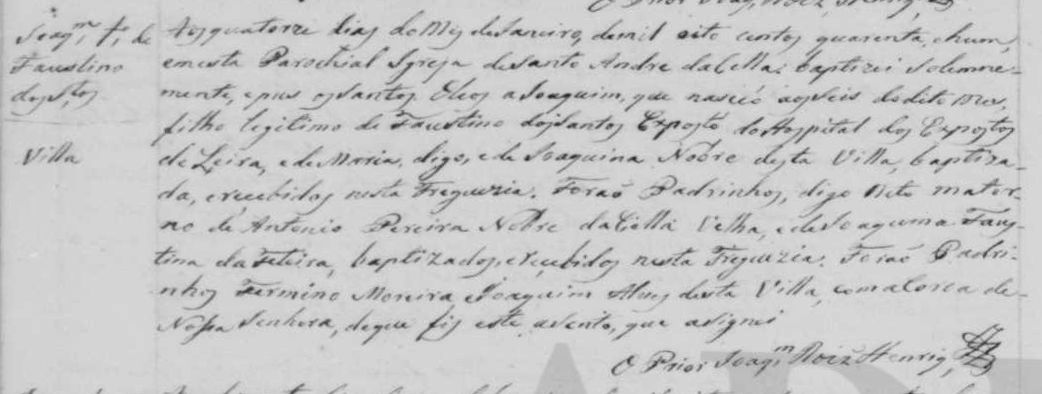 O Prior Joaq. Roiz Henriq.
Joaqm. f. de
Faustino
dos Stos.
Villa
Aos quatorze dias do Mes de Janeiro, de mil oito centos quarenta, e hum,
em esta Parochial Igreja de Santo Andre da Cella, baptizei solemne-
mente, e pus os Santos Oleos a Joaquim, que nasceo aos seis do dito Mes,
filho legitimo de Faustino dos Santos Exposto do Hospital dos Expostos
de Leiria, e de Maria, digo, e de Joaquina Nobre desta Villa, baptiza-
da, e recebidos nesta Freguezia. Foraõ Padrinhos, digo Neto mater-
no de Antonio Pereira Nobre da Cella Velha, e de Joaquina Faus-
tina da Feteira, baptizados, e recebidos nesta Freguezia. Foraõ Padri-
nhos Fermino Moreira e Joaquim Alves desta Villa, com a Coroa de
Nossa Senhora, de que fis este asento, que asignei
O Prior Joaqm. Roiz Henriq.